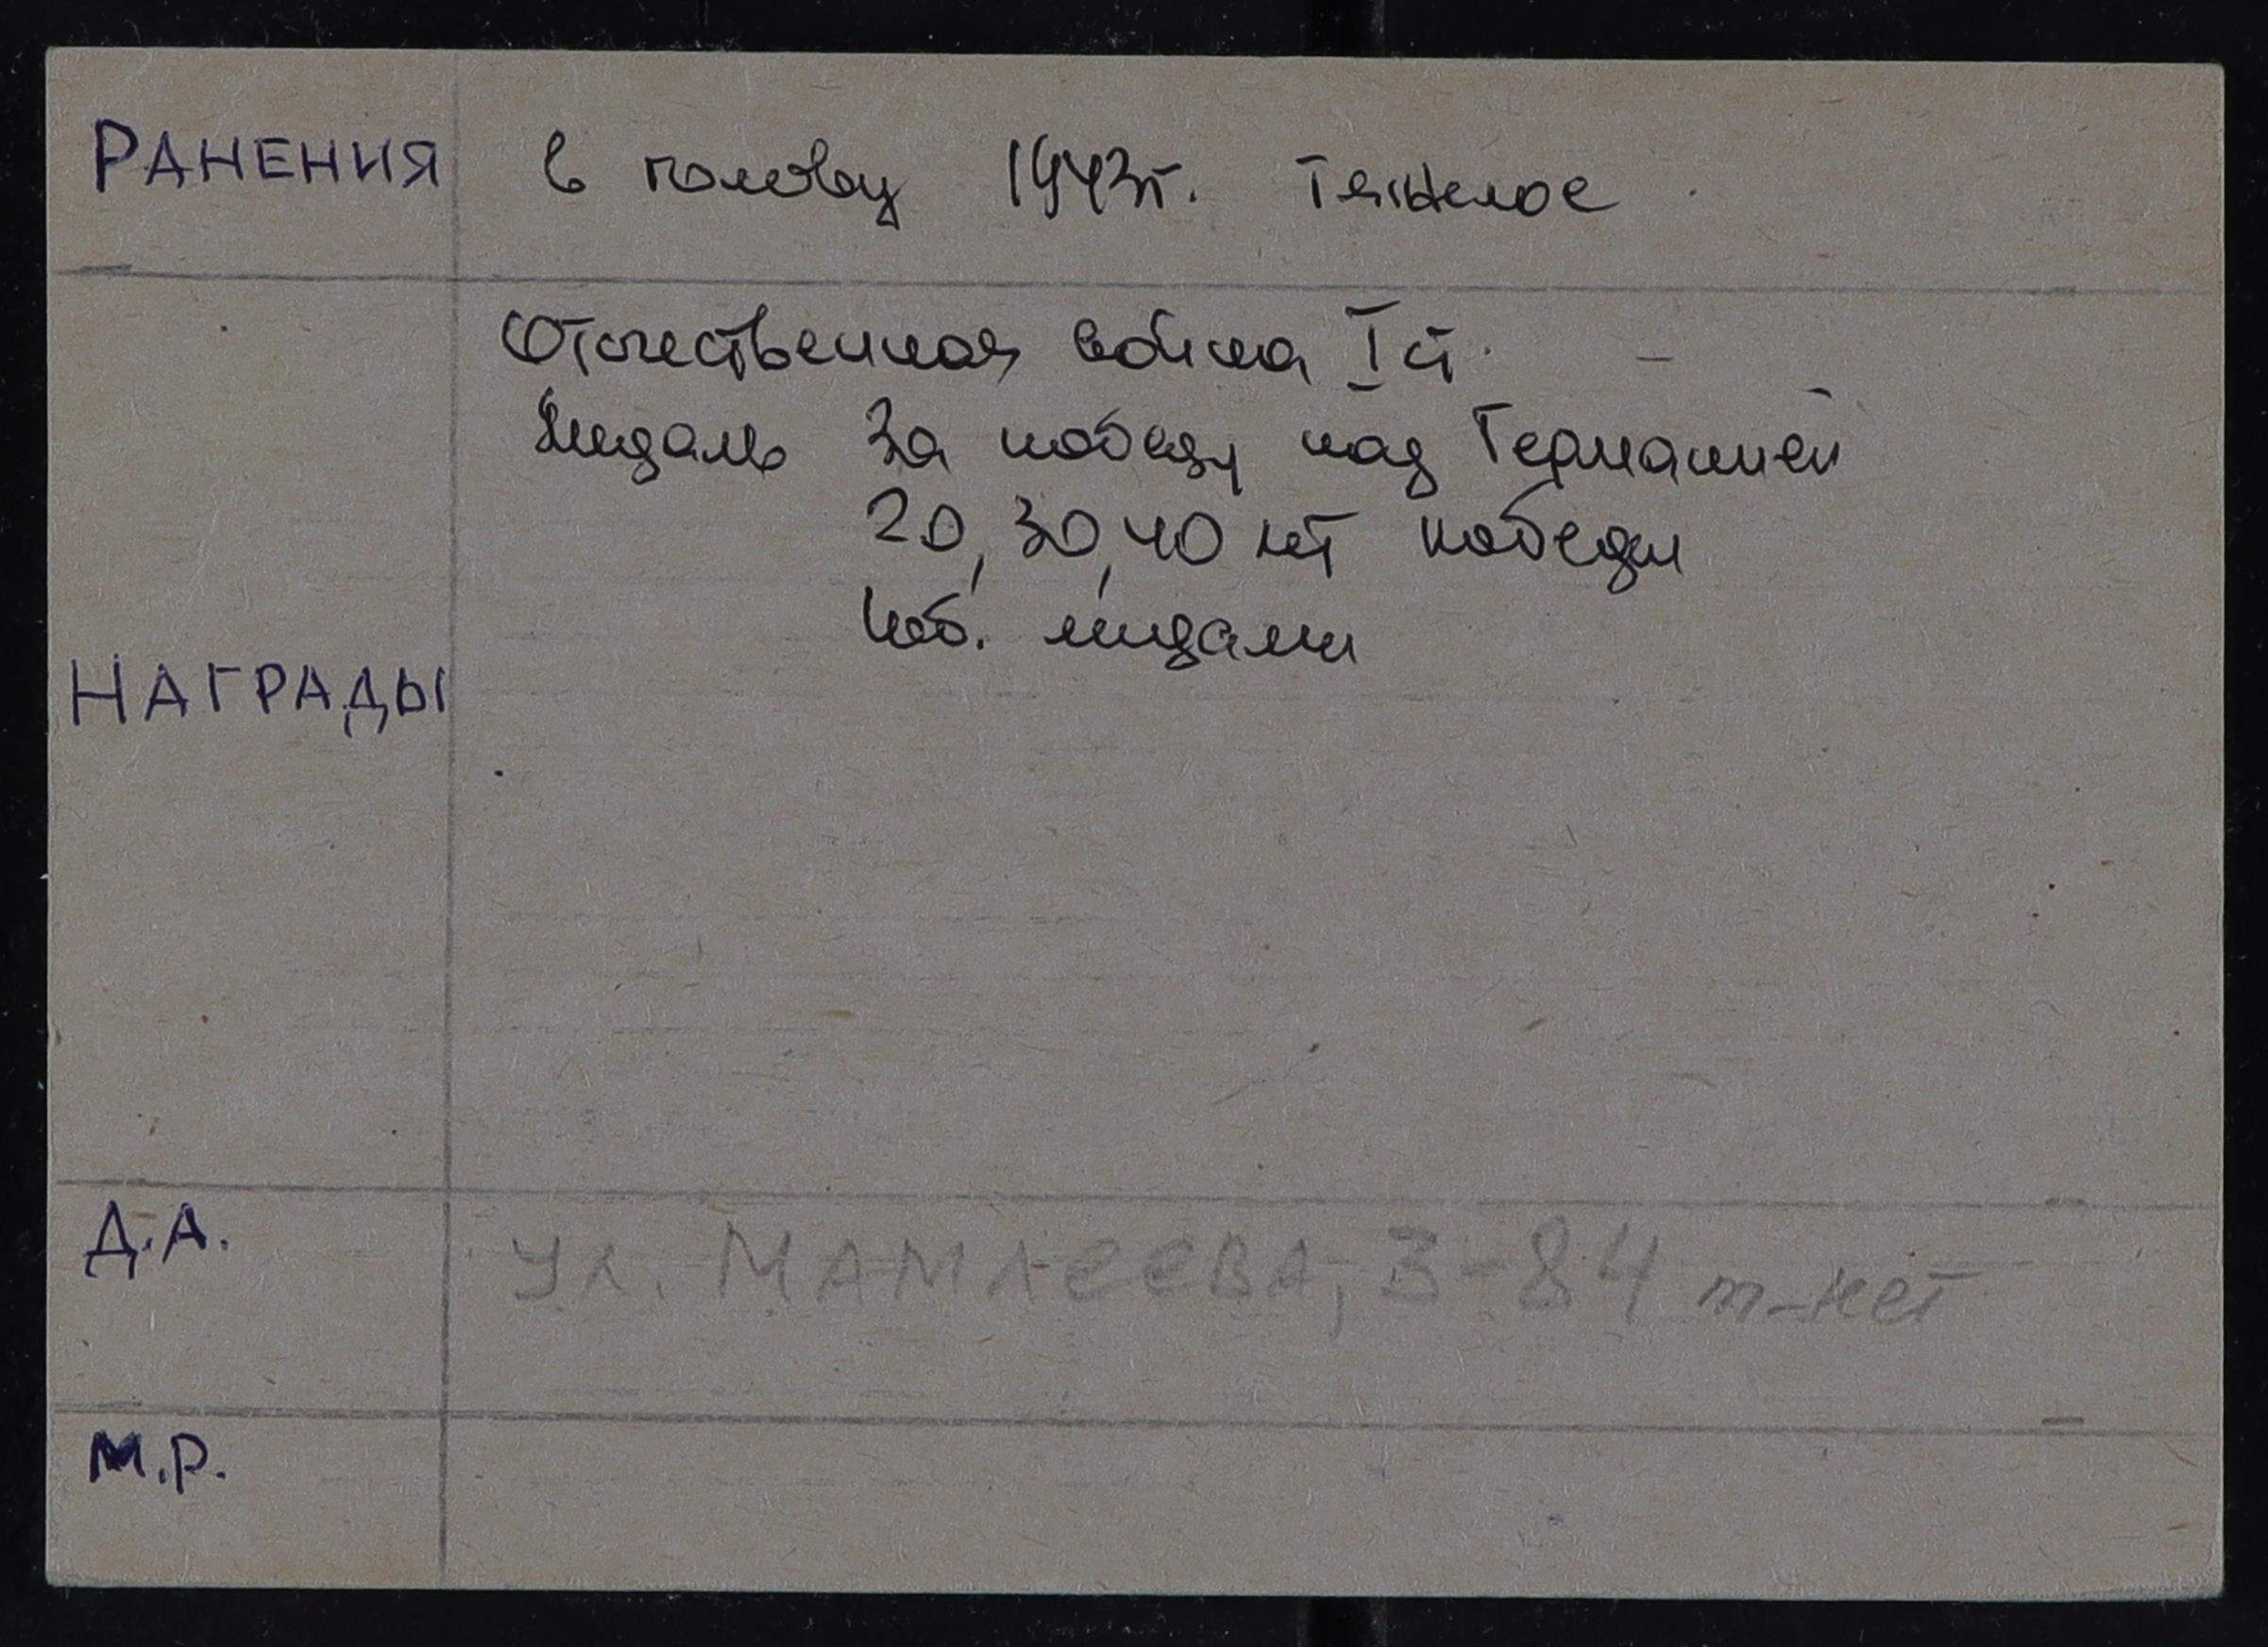 РАНЕНИЯ в голову 1943г. тяжелое
Отечественная война I ст.
Медаль За победу над Германией
20, 30, 40 лет победы
Юб. медали
НАГРАДЫ
Д.А. ул. МАМЛЕЕВА, 3-84 т-нет
М.Р.